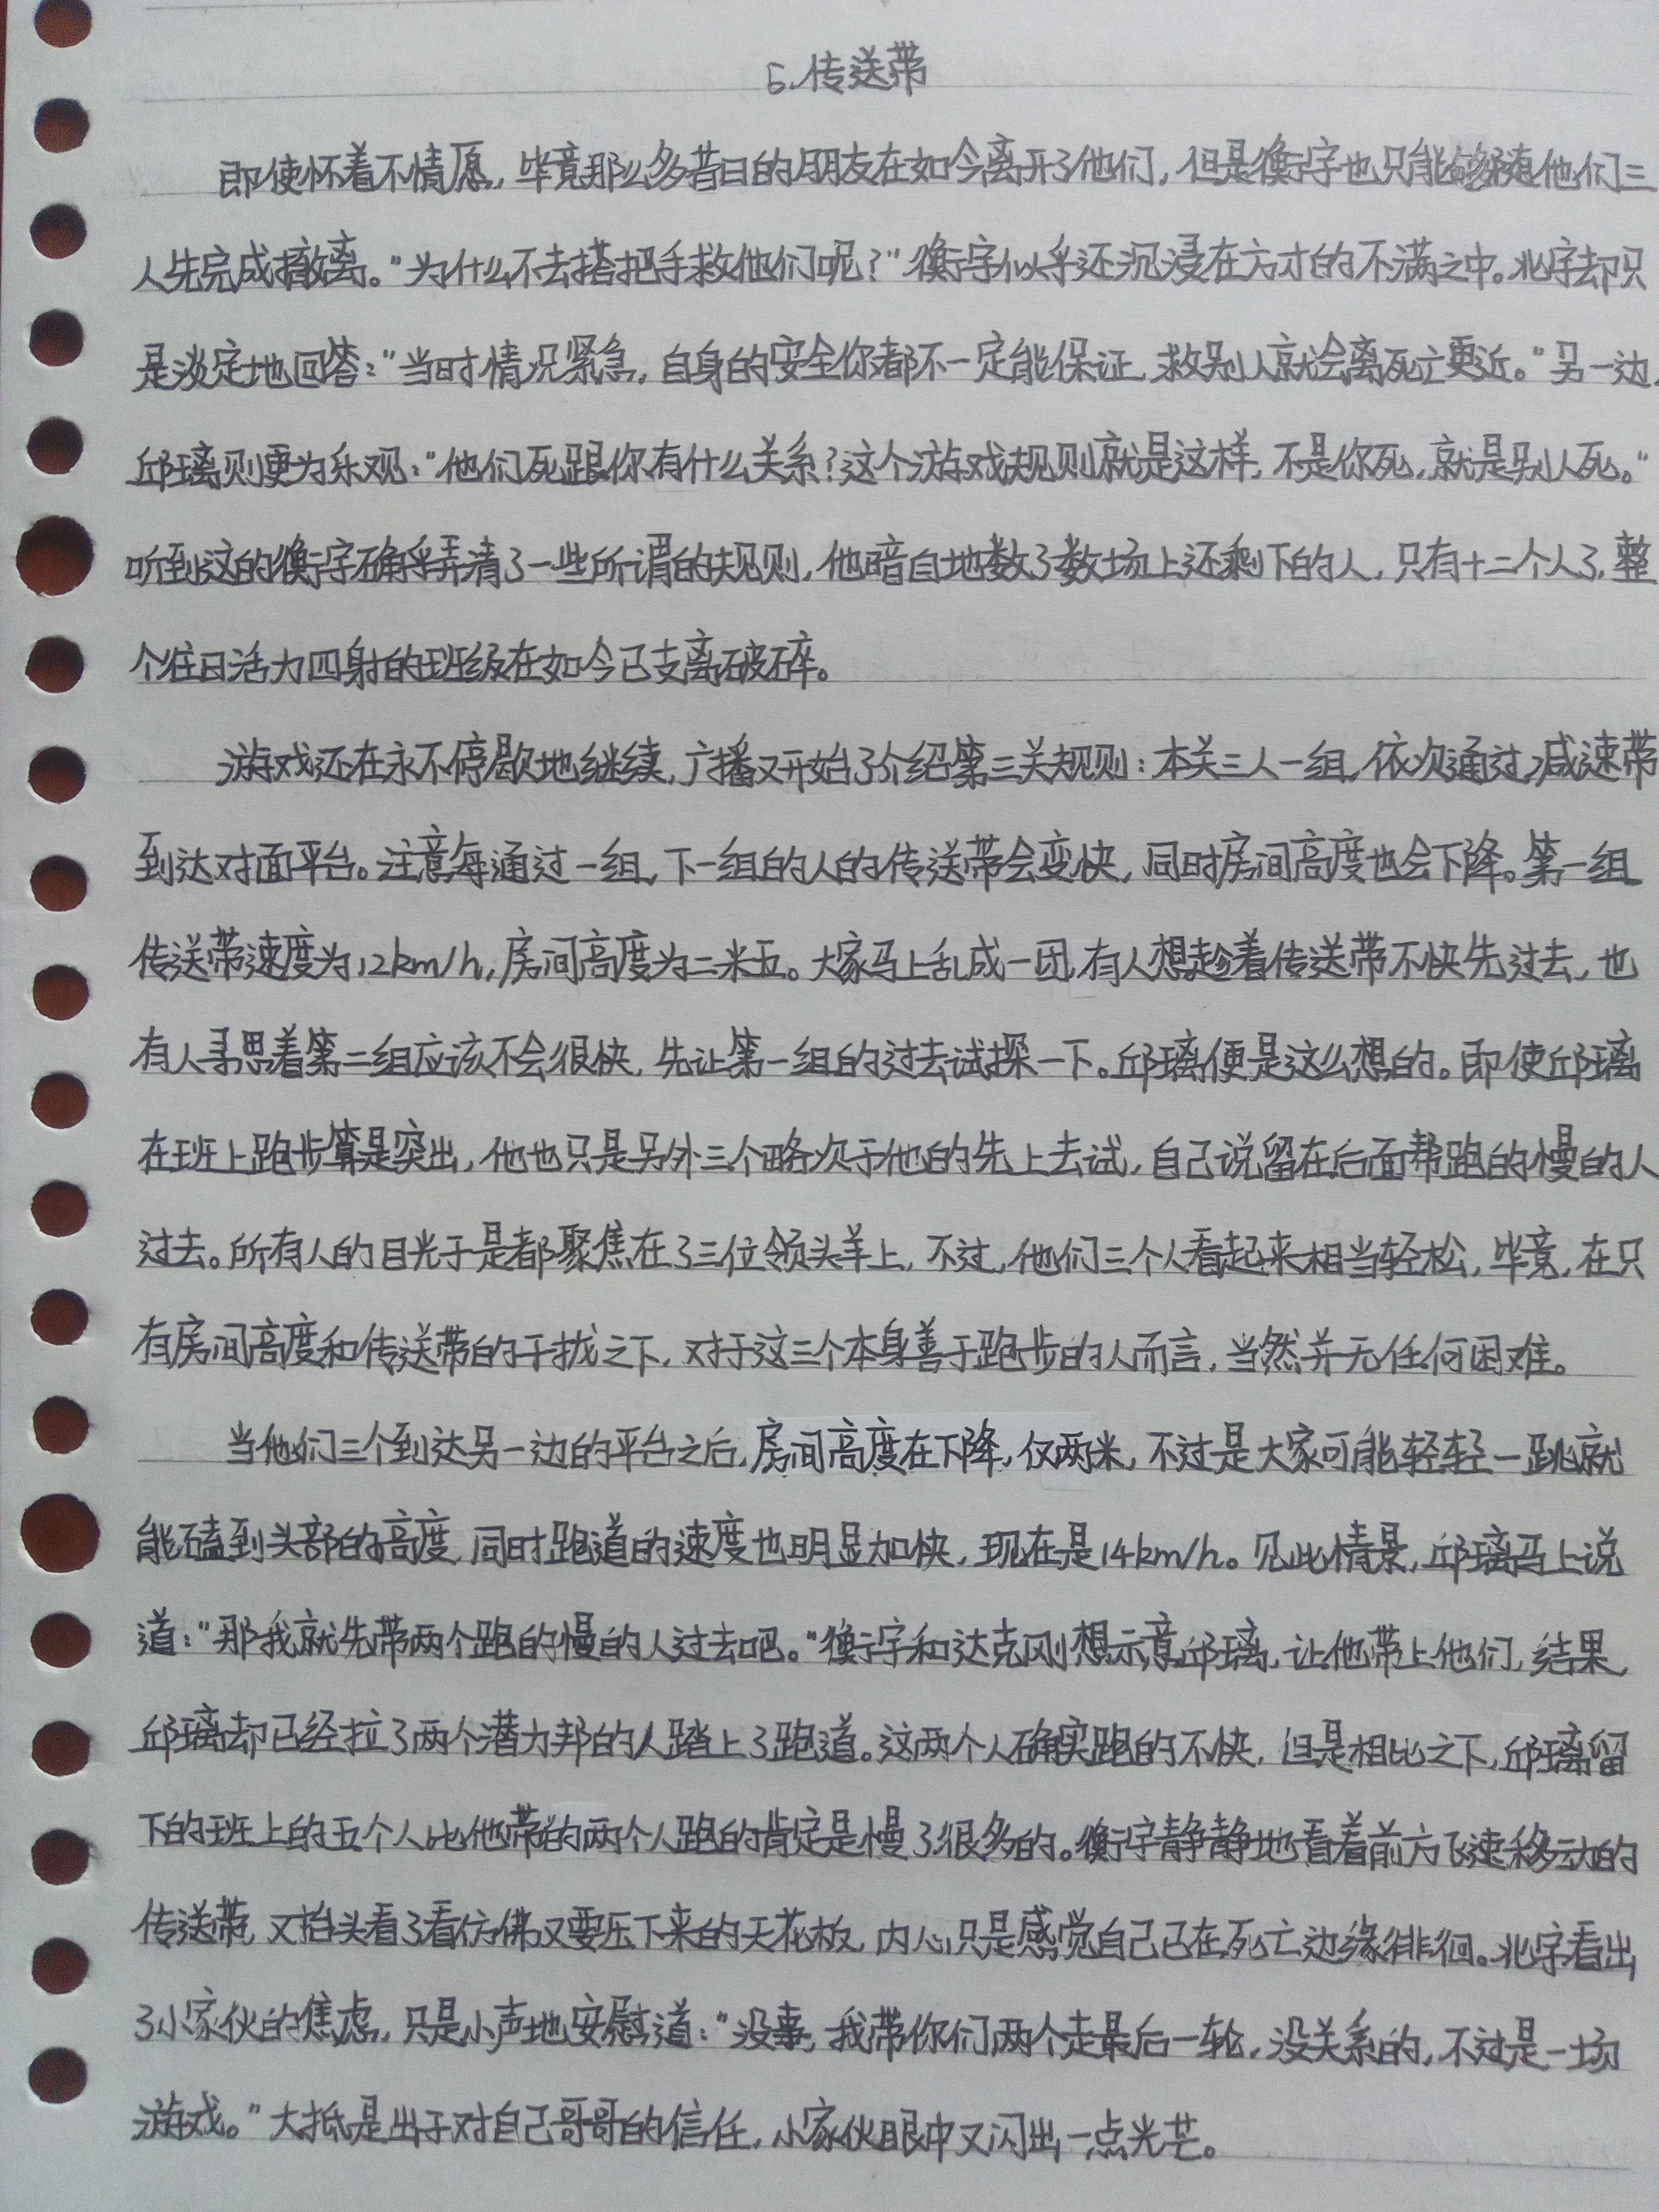 5.传送带
即使怀着不情愿，毕竟那么多昔日的朋友在如今离开了他们，但是衡宇也只能够随他们三
人先完成撤离。"为什么不去搭把手救他们呢？"衡宇似乎还沉浸在方才的不满之中。北宇却只
是淡定地回答："当时情况紧急，自身的安全你都不一定能保证，救别人就会离死亡更近。"另一边，
邱璃则更为乐观："他们死跟你有什么关系？这个游戏规则就是这样，不是你死，就是别人死。"
听到这的衡宇确乎弄清了一些所谓的规则，他暗自地数了数场上还剩下的人，只有十二个人了，整
个往日活力四射的班级在如今已支离破碎。
游戏还在永不停歇地继续，广播又开始了介绍第三关规则：本关三人一组，依次通过减速带
到达对面平台。注意每通过一组，下一组的人的传送带会变快，同时房间高度也会下降。第一组
传送带速度为12km/h，房间高度为二米五。大家马上乱成一团，有人想趁着传送带不快先过去，也
有人寻思着第二组应该不会很快，先让第一组的过去试探一下。邱璃便是这么想的。即使邱璃
在班上跑步算是突出，他也只是另外三个略次于他的先上去试，自己说留在后面帮跑的慢的人
过去。所有人的目光于是都聚焦在了三位领头羊上，不过，他们三个人看起来相当轻松，毕竟，在只
有房间高度和传送带的干扰之下，对于这三个本身善于跑步的人而言，当然并无任何困难。
当他们三个到达另一边的平台之后，房间高度在下降，仅两米，不过是大家可能轻轻一跳就
能磕到头部的高度，同时跑道的速度也明显加快，现在是14km/h。见此情景，邱璃马上说
道："那我就先带两个跑的慢的人过去吧。"衡宇和达克刚想示意邱璃，让他带上他们，结果，
邱璃却已经拉了两个潜力邦的人踏上了跑道。这两个人确实跑的不快，但是相比之下，邱璃留
下的班上的五个人比他带的两个人跑的肯定是慢了很多的。衡宇静静地看着前方飞速移动的
传送带，又抬头看了看仿佛又要压下来的天花板，内心只是感觉自己已在死亡边缘徘徊。北宇看出
了小家伙的焦虑，只是小声地安慰道："没事，我带你们两个走最后一轮，没关系的，不过是一场
游戏。"大抵是出于对自己哥哥的信任，小家伙眼中又闪出一点光芒。